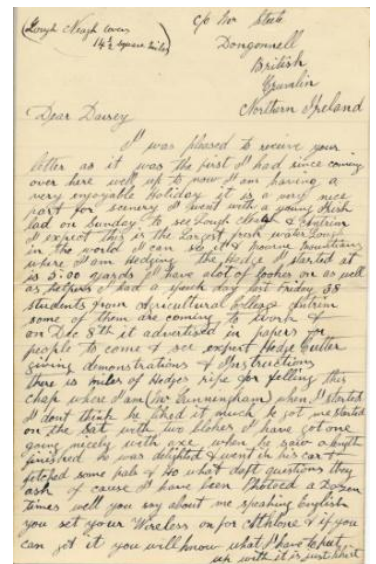 (Lough Neagh covers
14½ Square Miles)
c/o Mr Steele
Dongonnell
British
Crumlin
Northern Ireland
Dear Davey
I was pleased to receive your
letter as it was the first I had since coming
over here well up to now I am having a
very enjoyable Holiday it is a very nice
part for scenery I went with a young Irish
lad on Sunday to see Lough Neagh & Antrim
I expect this is the Largest fresh water Lough
in the world I can see it & Mourne Mountains
where I am Hedging the Hedge I started at
is 500 yards I have alot of looker on as well
as helpers I had a day last Friday 38
students from Agricultural College Antrim
some of them are coming to work &
on Dec 8th it advertised in papers for
people to come & see expert Hedge Cutter
giving demonstrations & Instructions
there is miles of Hedges ripe for felling this
chap where I am (Mr Cunningham) when I started
I dont think he liked it much he got me started
on the Sat with two blokes I have got one
going nicely with axe when he saw a length
finished he was delighted & went in his car &
fetched some pals & Ho what daft questions they
ask of cause I have been Photoed a Dozen
times well you say about me speaking English
you set your Wireless on for Athlone & if you
can get it you will know what I have to put
up with it is just